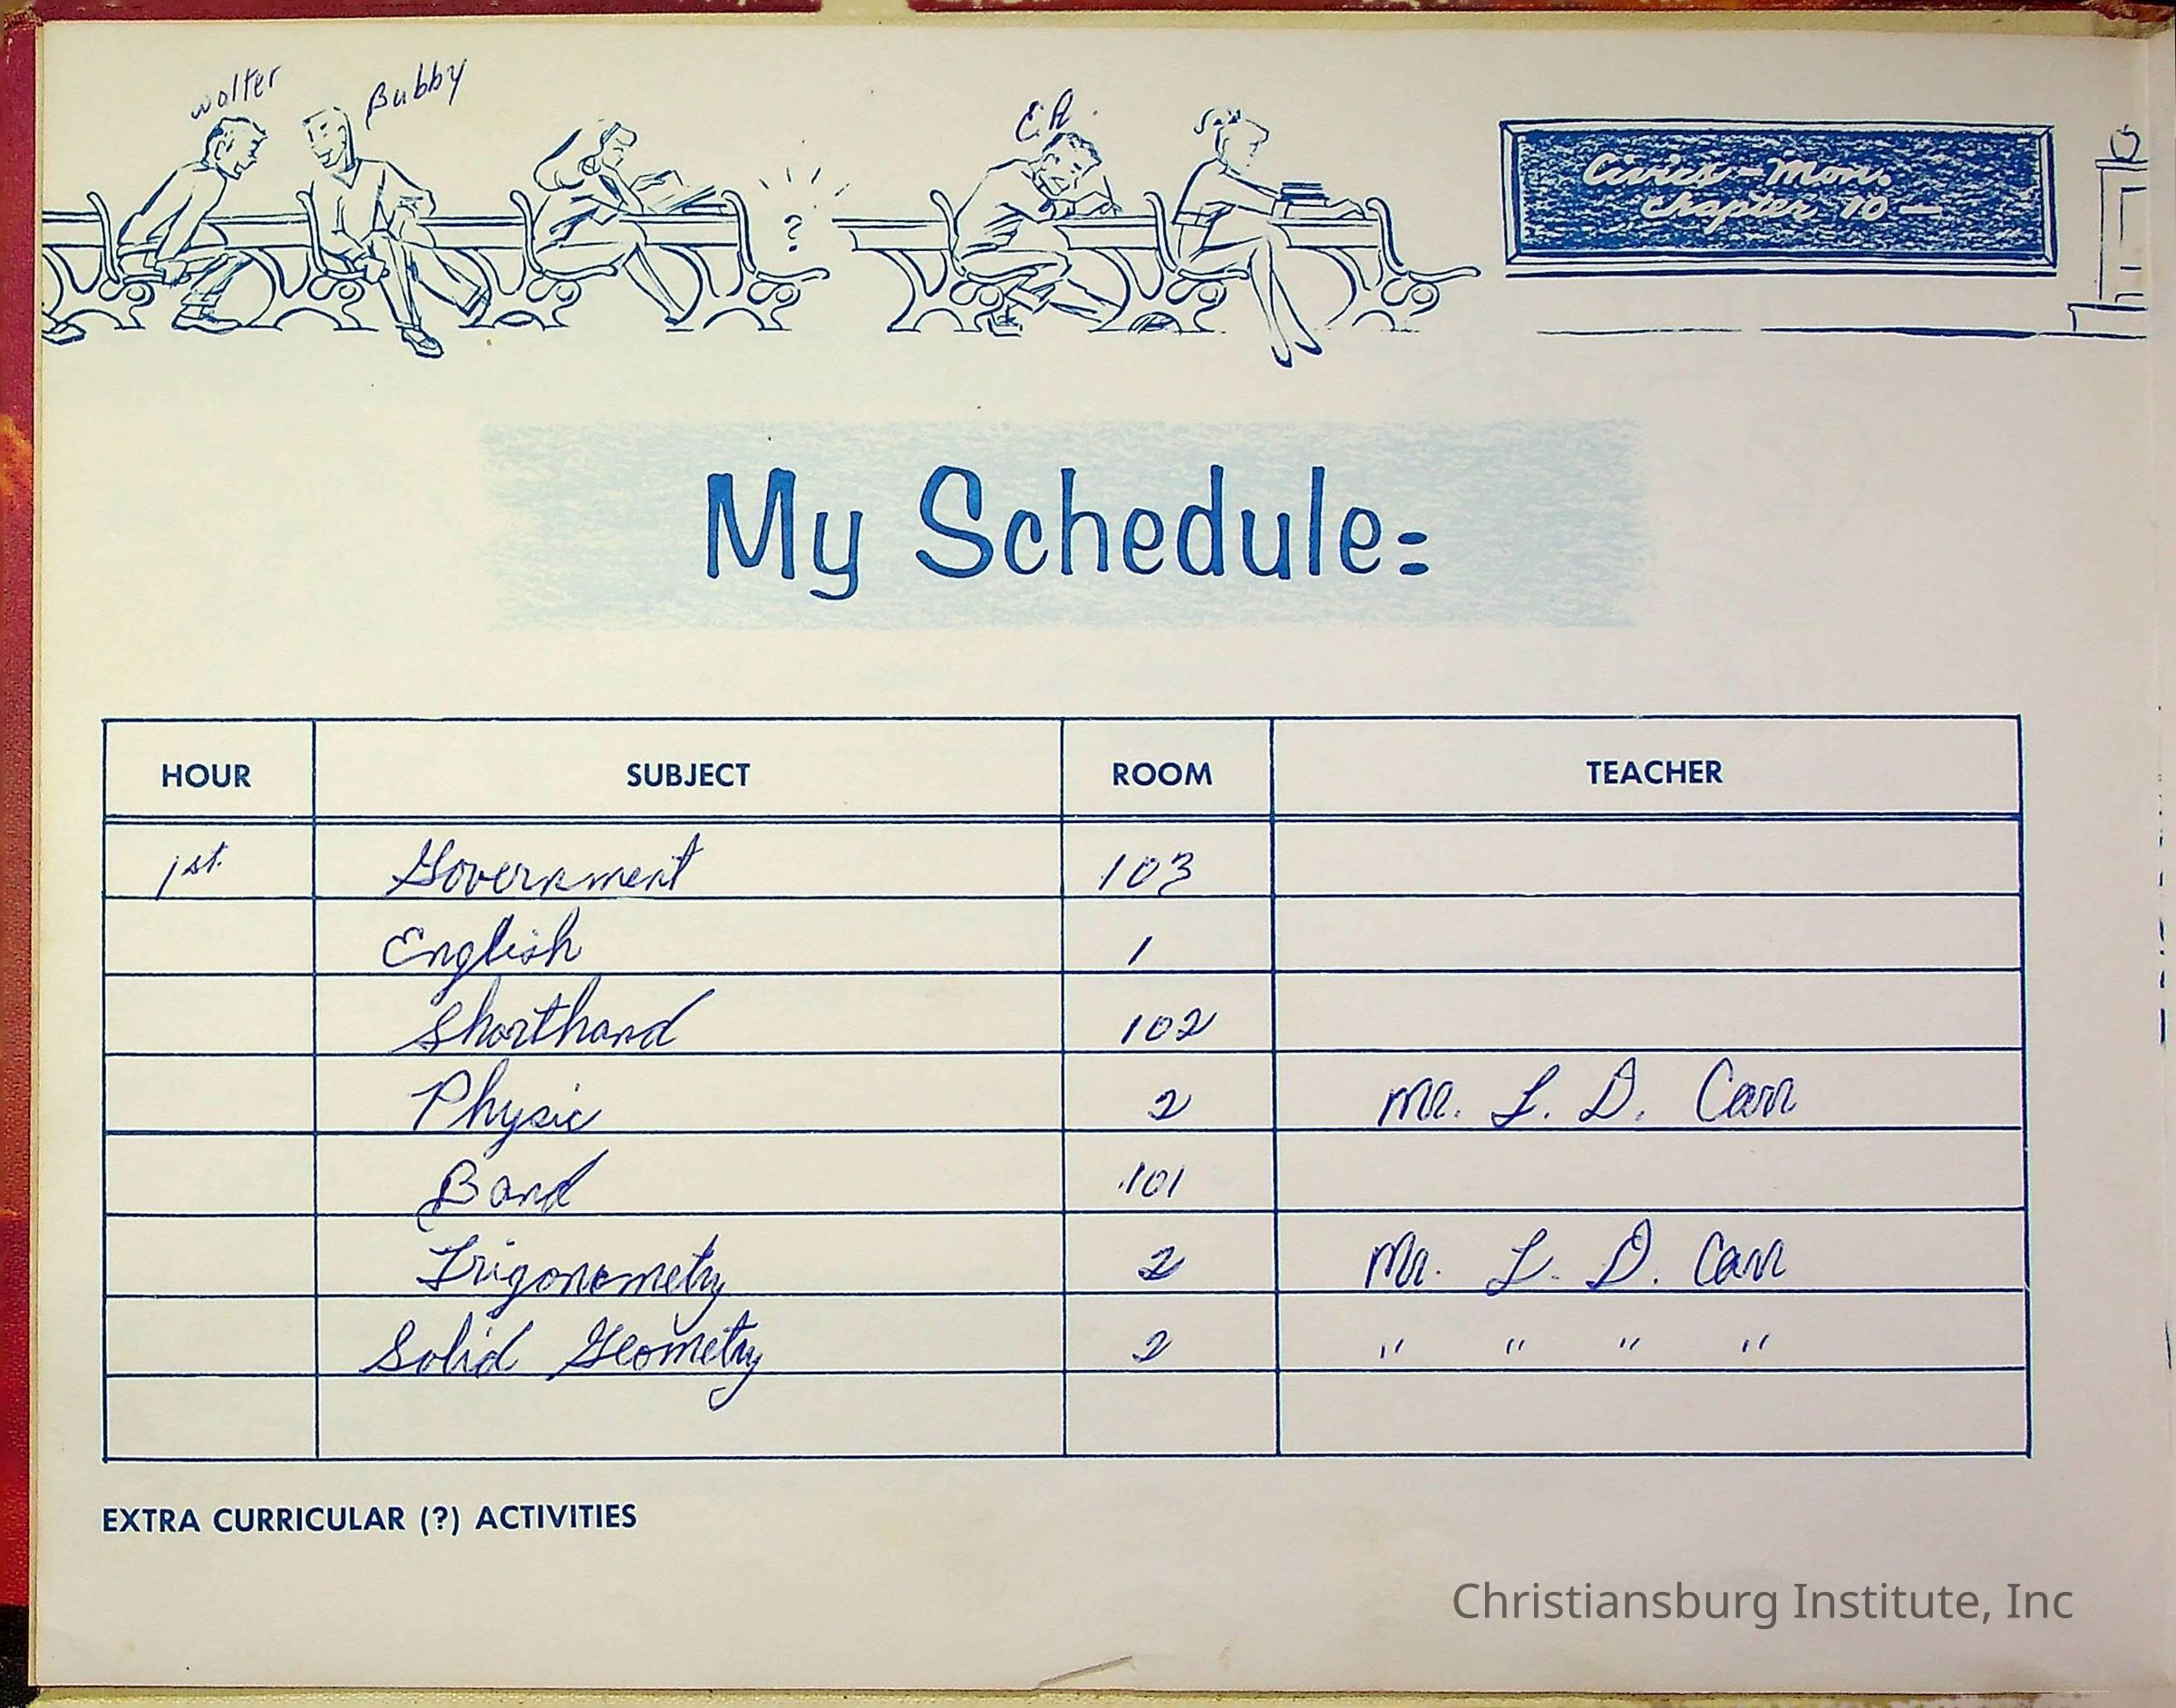 Walter
Bubby
E.R.
Civics - Mon.
Chapter 10 -
?
My Schedule:
HOUR SUBJECT ROOM TEACHER
1st. Government 103
English 1
Shorthand 102
Physic 2 Mr. L. D. Carr
Band 101
Trigonometry 2 Mr. L. D. Carr
Solid Geometry 2 " " " "
EXTRA CURRICULAR (?) ACTIVITIES
Christiansburg Institute, Inc